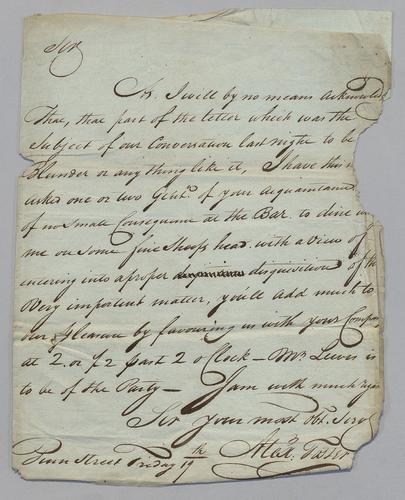 Sir
As I will by no means acknowled
That, that part of the letter which was the
Subject of our Conversation last night to be
Blunder or any thing like it, I have this
asked one or two Gentn. of your acquaintance
of no small Consequence at the Bar. to dine
me on some fine Sheeps head with a view of
entering into a proper disquisition of the
Very important matter, you'll add much to
our pleasure by favouring us with your Compa
at 2. or ½ past 2 o Clock – Mr. Lewis is
to be of the Party – I am with much
Sir your most Obt. Serv
Penn Street Friday 19th Alexr.